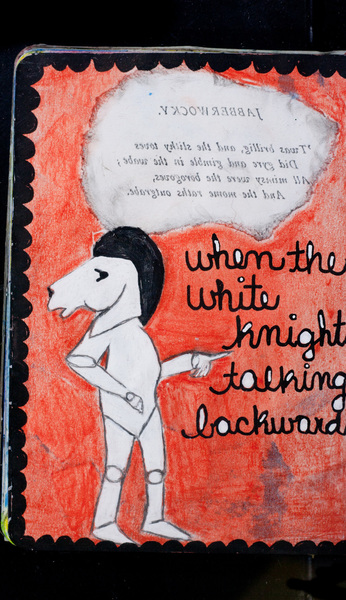 JABBERWOCKY.
'Twas brillig, and the slithy toves
Did gyre and gimble in the wabe;
All mimsy were the borogoves,
And the mome raths outgrabe.
when the
white
knight
talking
backward